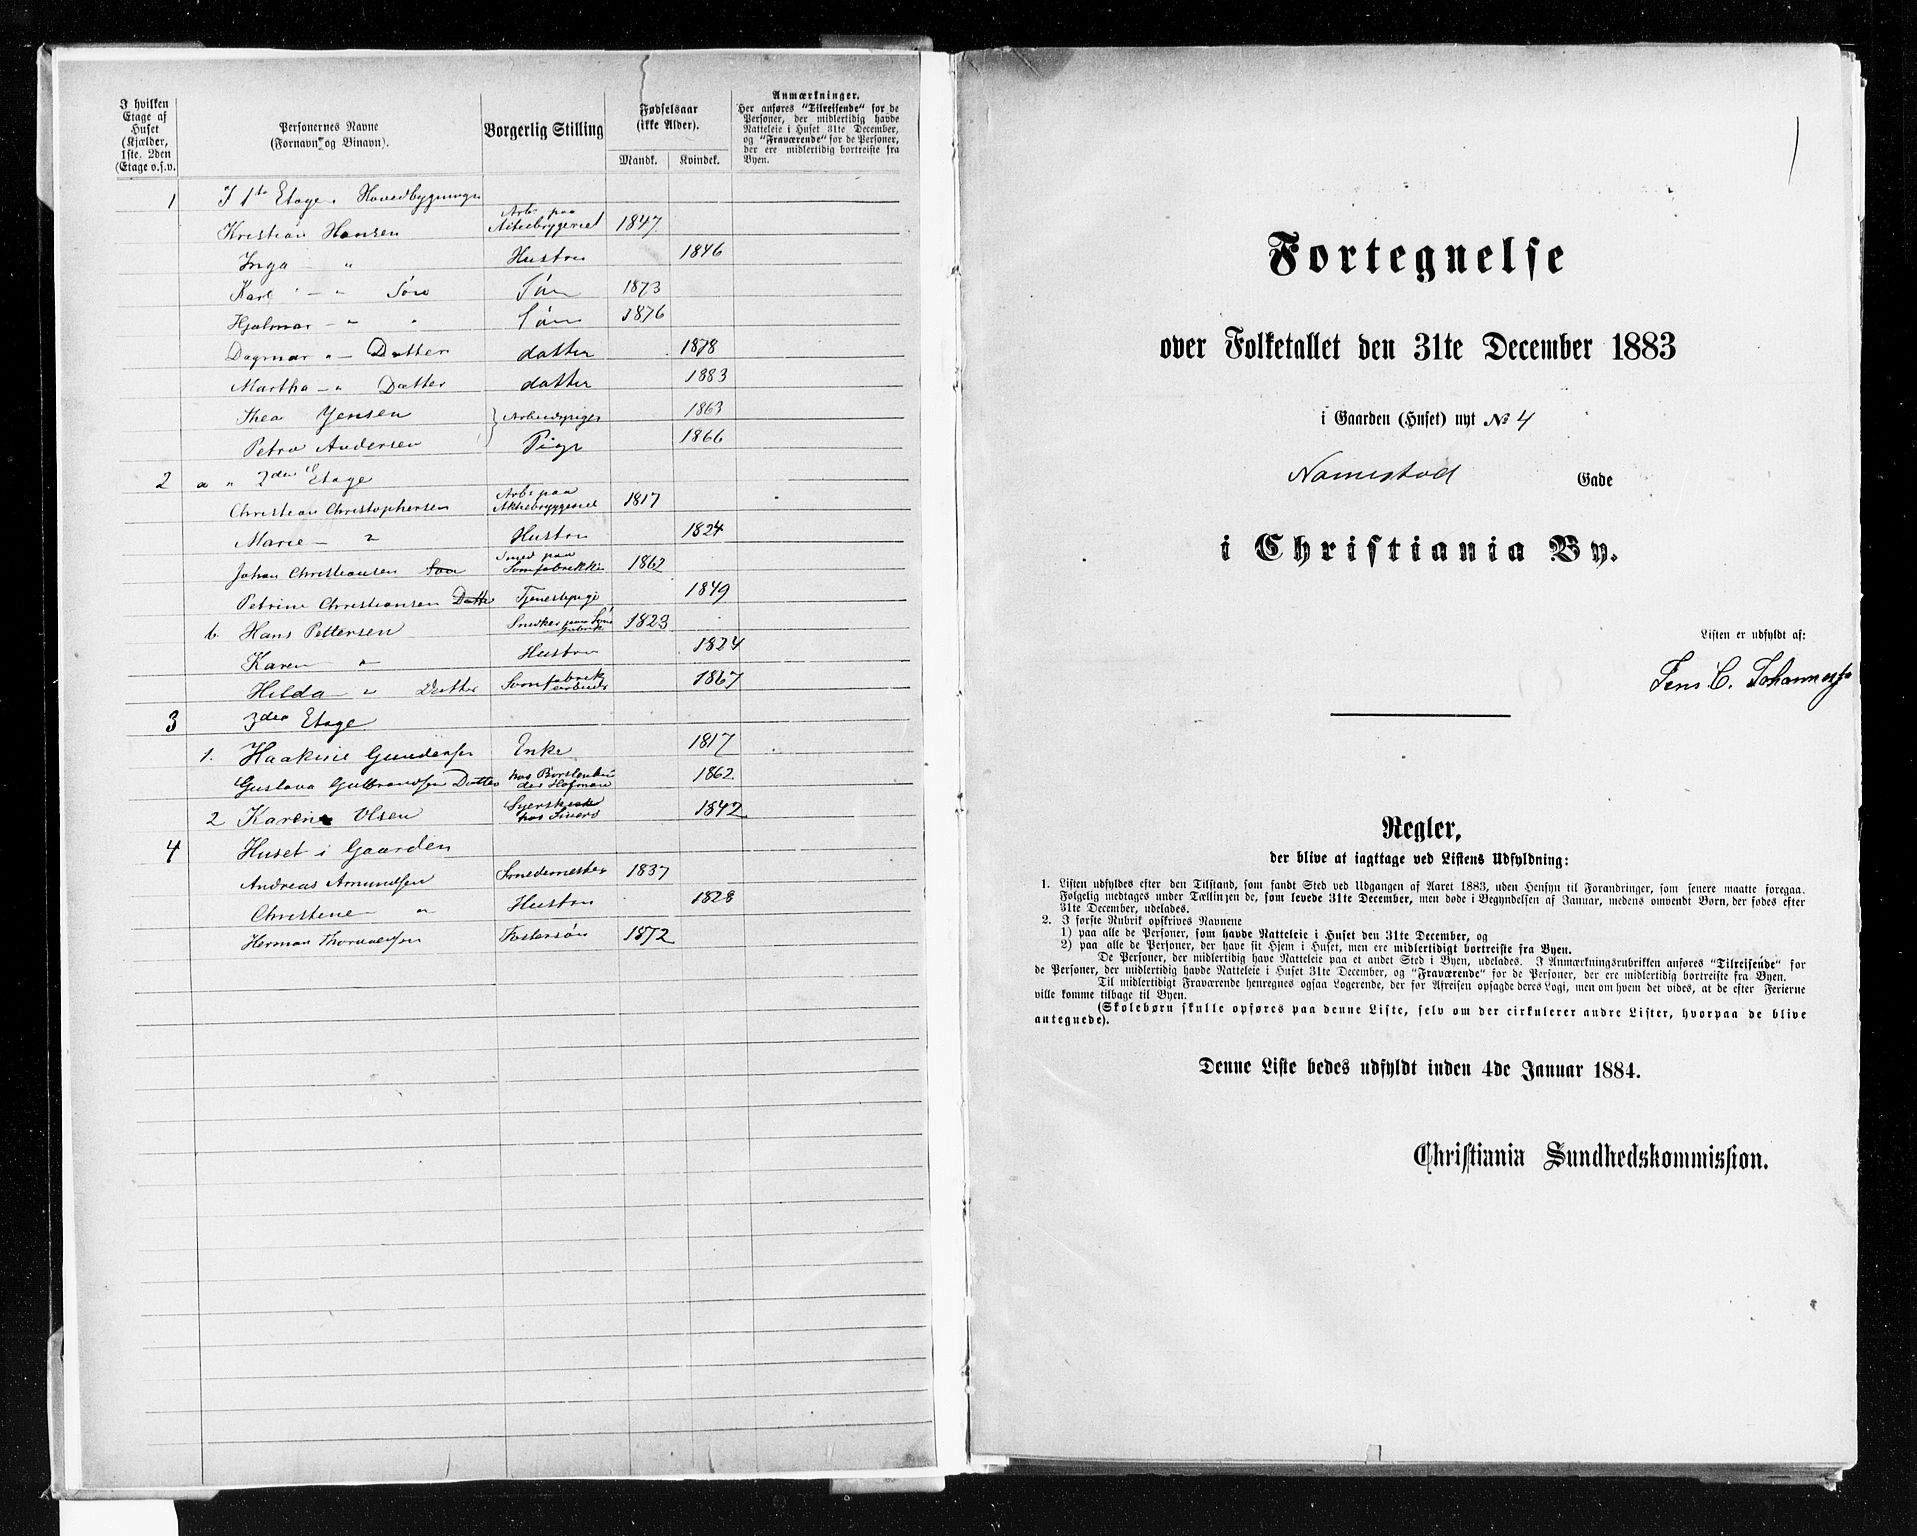 I hvilken
Etage af
Huset
(Kjælder,
1ste, 2den
Etage o.s.v.
Personernes Navne
(Fornavn og Binavn).
Borgerlig Stilling
Fødselsaar
(ikke Alder).
Mandk. Kvindek.
Anmærkninger.
Her anføres "Tilreisende" for de
Personer, der midlertidig havde
Natteleie i Huset 31te December,
og "Fraværende" for de Personer,
der ere midlertidig bortreiste fra
Byen.
1 I 1te Etage Hovedbygningen
Kristian Hansen Arb. paa Aktiebryggeriet 1847
Inga — " Hustru 1846
Karl — " Søn Søn 1873
Hjalmar — " " Søn 1876
Dagmar " — Datter datter 1878
Martha — " Datter datter 1883
Thea Jensen Arbeidspiger 1863
Petra Andersen Pige 1866
2 a " 2den Etage
Christian Christophersen Arb. paa Aktiebryggeriet 1817
Marie — " Hustru 1824
Johan Christiansen Søn Smed paa Sømfabrikke 1862
Petrine Christiansen Datte Tjenestepige 1849
b. Hans Pettersen Snedker paa Søm fabrik 1823
Karen " Hustru 1824
Hilda — " Datter Sømfabrik arbeider 1867
3 3die Etage
1. Haakine Gundersen Enke 1817
Gustava Gulbrandsen Datter hos Børstenbinder Hofman 1862
2 Karen Olsen Syerske hos Sivers 1842
4 Huset i Gaarden
Andreas Amundsen Smedemester 1837
Christine — " Hustru 1828
Herman Thorvaldsen Fostersøn 1872
Fortegnelse
over Folketallet den 31te December 1883
i Gaarden (Huset) nyt № 4
Namestad Gade
i Christiania By.
Listen er udfyldt af:
Jens C. Johannesse
Regler,
der blive at iagttage ved Listens Udfyldning:
1. Listen udfyldes efter den Tilstand, som fandt Sted ved Udgangen af Aaret 1883, uden Hensyn til Forandringer, som senere maatte foregaa.
Følgelig medtages under Tællingen de, som levede 31te December, men døde i Begyndelsen af Januar, medens omvendt Børn, der fødes efter
31te December, udelades.
2. I første Rubrik opskrives Navnene
1) paa alle de Personer, som havde Natteleie i Huset den 31te December, og
2) paa alle de Personer, der have sit Hjem i Huset, men ere midlertidigt bortreiste fra Byen.
De Personer, der midlertidig have Natteleie paa et andet Sted i Byen, udelades. I Anmærkningsrubrikken anføres "Tilreisende" for
de Personer, der midlertidig havde Natteleie i Huset 31te December, og "Fraværende" for de Personer, der ere midlertidig bortreiste fra Byen.
Til midlertidigt Fraværende henregnes ogsaa Logerende, der før Afreisen opsagde deres Logi, men om hvem det vides, at de efter Ferierne
ville komme tilbage til Byen.
(Skolebørn skulle opføres paa denne Liste, selv om der cirkulerer andre Lister, hvorpaa de blive
antegnede).
Denne Liste bedes udfyldt inden 4de Januar 1884.
Christiania Sundhedskommission.